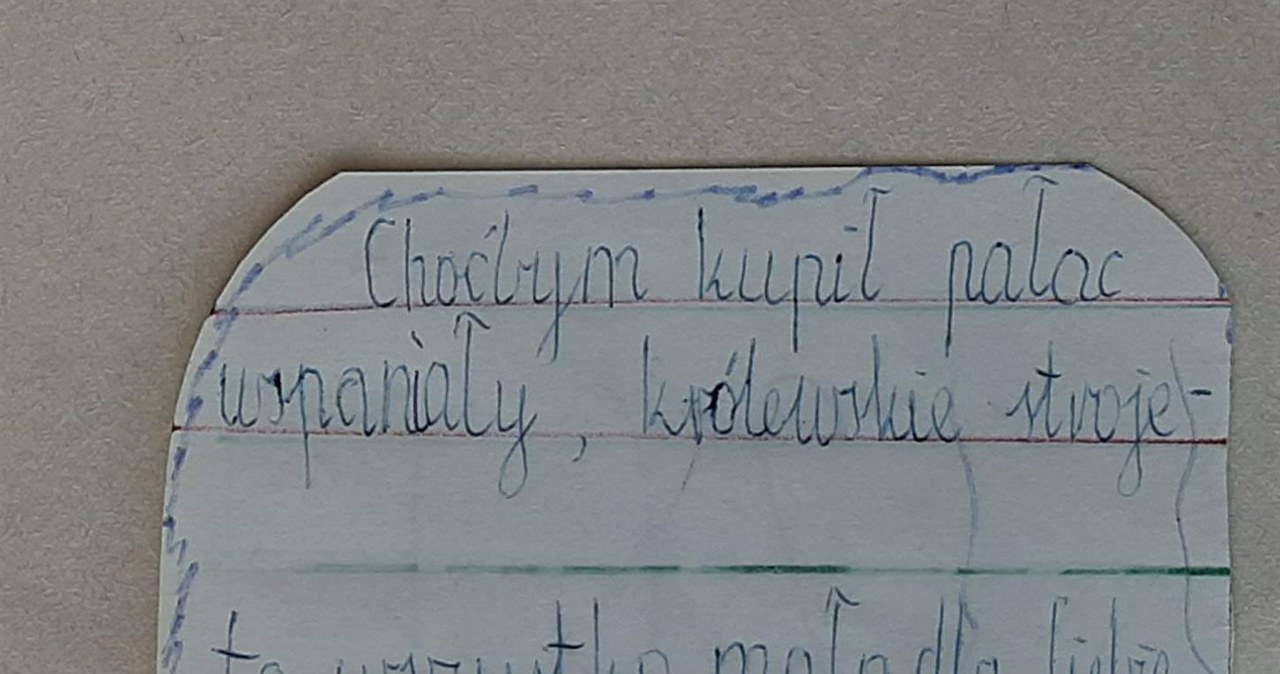 Choćbym kupił pałac
wspaniały, królewskie stroje-
to wszystko mało dla Ciebie